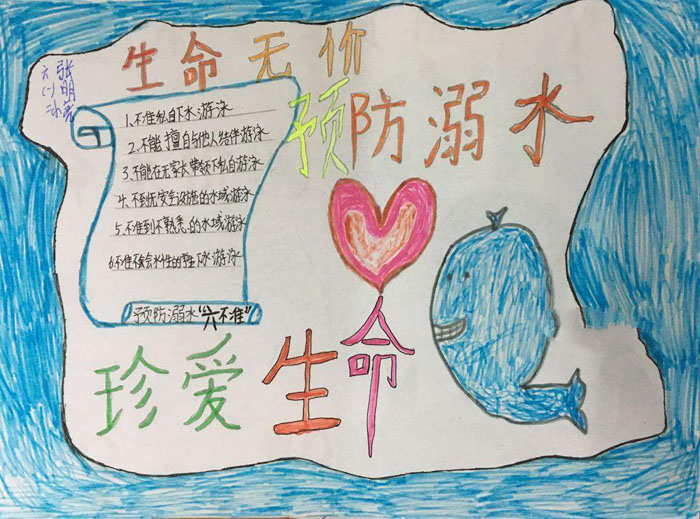 生命无价
预防溺水
张明
1.不准私自下水游泳
2.不能擅自与他人结伴游泳
3.不能在无家长带领下私自游泳
4.不到无安全设施的水域游泳
5.不准到不熟悉的水域游泳
6.不准不会水性的学生下水游泳
预防溺水“六不准”
珍爱生命